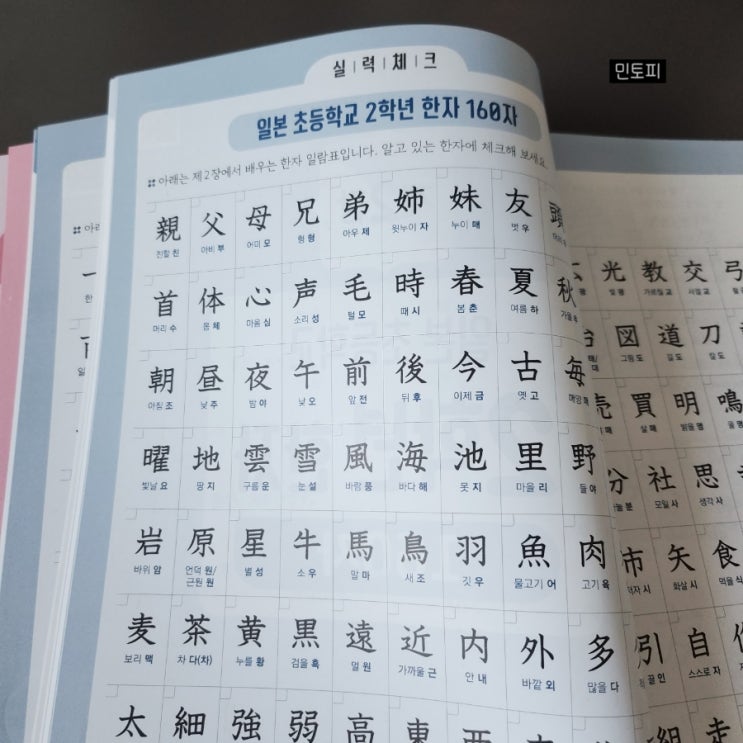 실력체크
민토피
일본 초등학교 2학년 한자 160자
아래는 제2장에서 배우는 한자 일람표입니다. 알고 있는 한자에 체크해 보세요.
親 父 母 兄 弟 姉 妹 友 頭
친할 친 아비 부 어미 모 형 형 아우 제 윗누이 자 누이 매 벗 우
首 体 心 声 毛 時 春 夏 秋
머리 수 몸 체 마음 심 소리 성 털 모 때 시 봄 춘 여름 하 가을
朝 昼 夜 午 前 後 今 古 毎
아침 조 낮 주 밤 야 낮 오 앞 전 뒤 후 이제 금 옛 고 매양
曜 地 雲 雪 風 海 池 里 野
빛날 요 땅 지 구름 운 눈 설 바람 풍 바다 해 못 지 마을 리 들 야
岩 原 星 牛 馬 鳥 羽 魚 肉
바위 암 언덕 원/근원 원 별 성 소 우 말 마 새 조 깃 우 물고기 어 고기 육
麦 茶 黄 黒 遠 近 内 外 多
보리 맥 차 다(차) 누를 황 검을 흑 멀 원 가까울 근 안 내 바깥 외 많을 다
太 細 強 弱 高 東 西
広 光 教 交 弓
빛 광 가르칠 교 사귈 교
図 道 刀
그림 도 길 도 칼 도
売 買 明 鳴
살 매 밝을 명 울 명
分 社 思
모일 사 생각 사
市 矢 食
화살 시 먹을 식
引 自
끌 인 스스로 자
組 走